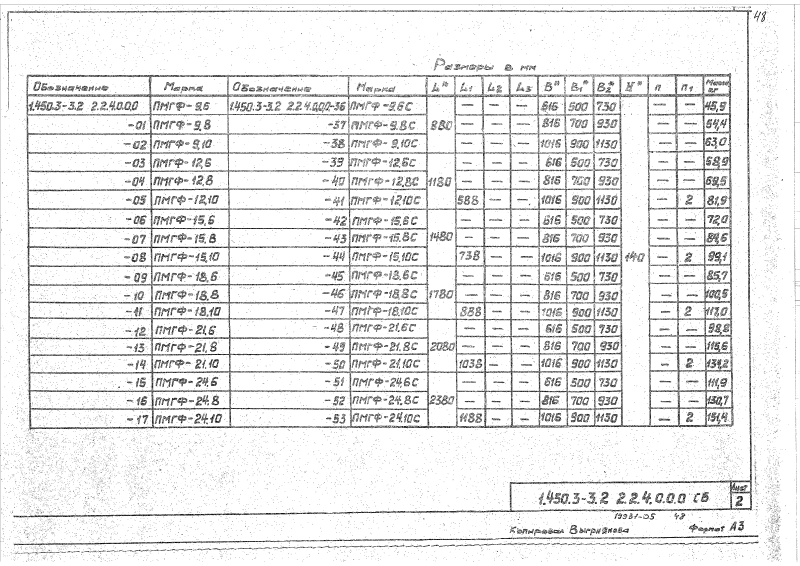 48
Размеры в мм
Обозначение Марка Обозначение Марка L* L1 L2 L3 B* B1* B2* H* n n1 Масса кг
1.450.3-3.2 2.2.4.0.0.0 ПМГФ-9,6 1.450.3-3.2 2.2.4.0.0.0-36 ПМГФ-9,6С — — — 616 500 730 — — 45,9
-01 ПМГФ-9,8 -37 ПМГФ-9,8С 880 — — — 816 700 930 — — 54,4
-02 ПМГФ-9,10 -38 ПМГФ-9,10С — — — 1016 900 1130 — — 63,0
-03 ПМГФ-12,6 -39 ПМГФ-12,6С — — — 616 500 730 — — 58,9
-04 ПМГФ-12,8 -40 ПМГФ-12,8С 1180 — — — 816 700 930 — — 69,5
-05 ПМГФ-12,10 -41 ПМГФ-12,10С 588 — — 1016 900 1130 — 2 81,9
-06 ПМГФ-15,6 -42 ПМГФ-15,6С — — — 616 500 730 — — 72,0
-07 ПМГФ-15,8 -43 ПМГФ-15,8С 1480 — — — 816 700 930 — — 84,6
-08 ПМГФ-15,10 -44 ПМГФ-15,10С 738 — — 1016 900 1130 140 — 2 99,1
-09 ПМГФ-18,6 -45 ПМГФ-18,6С — — — 616 500 730 — — 85,7
-10 ПМГФ-18,8 -46 ПМГФ-18,8С 1780 — — — 816 700 930 — — 100,5
-11 ПМГФ-18,10 -47 ПМГФ-18,10С 888 — — 1016 900 1130 — 2 117,0
-12 ПМГФ-21,6 -48 ПМГФ-21,6С — — — 616 500 730 — — 98,8
-13 ПМГФ-21,8 -49 ПМГФ-21,8С 2080 — — — 816 700 930 — — 115,6
-14 ПМГФ-21,10 -50 ПМГФ-21,10С 1038 — — 1016 900 1130 — 2 134,2
-15 ПМГФ-24,6 -51 ПМГФ-24,6С — — — 616 500 730 — — 111,9
-16 ПМГФ-24,8 -52 ПМГФ-24,8С 2380 — — — 816 700 930 — — 130,7
-17 ПМГФ-24,10 -53 ПМГФ-24,10С 1188 — — 1016 900 1130 — 2 151,4
1.450.3-3.2 2.2.4.0.0.0 СБ
Лист
2
19931-05 48
Копировал Выгриянова Формат А3